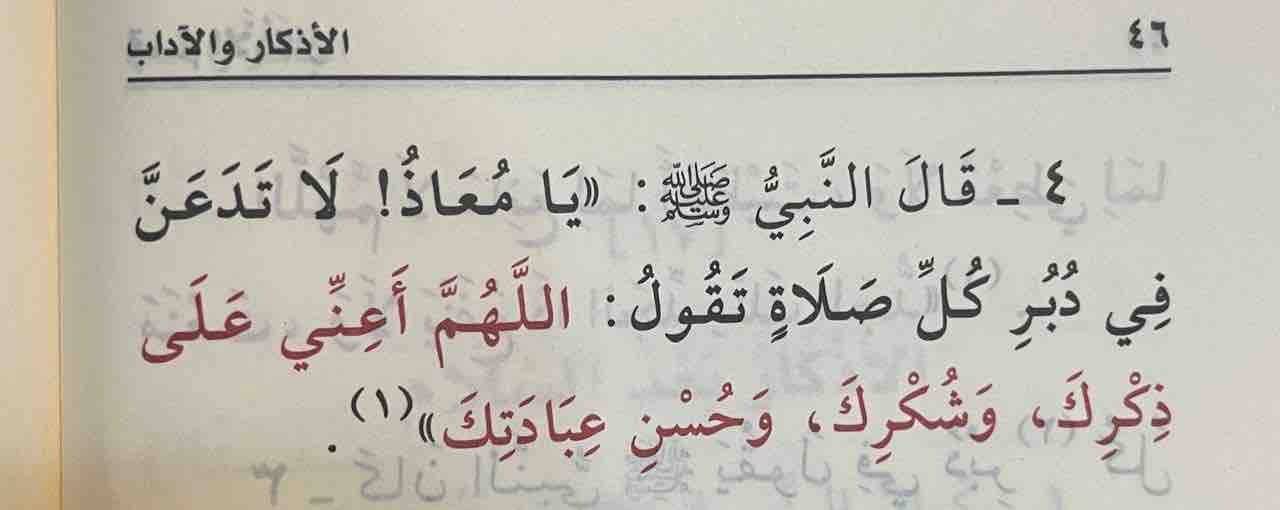 ٤٦ الأذكار والآداب
٤ ـ قَالَ النَّبِيُّ ﷺ: «يَا مُعَاذُ! لَا تَدَعَنَّ
فِي دُبُرِ كُلِّ صَلَاةٍ تَقُولُ: اللَّهُمَّ أَعِنِّي عَلَى
ذِكْرِكَ، وَشُكْرِكَ، وَحُسْنِ عِبَادَتِكَ»(١).